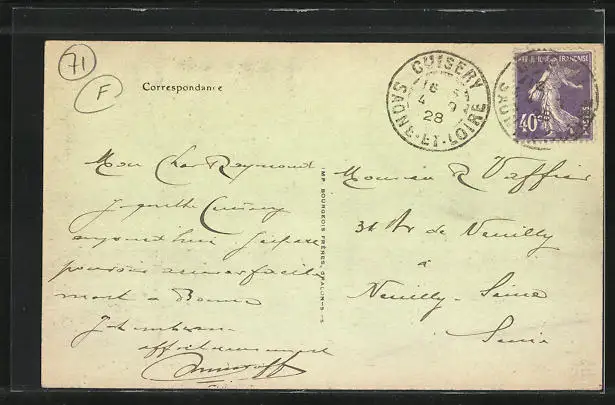 71
F
Correspondance
CUISERY
16 -
4 - 9
28
SAONE-ET-LOIRE
REPUBLIQUE FRANÇAISE
40c
POSTES
Mon Cher Raymond
Je quitte Cuisery
aujourd'hui J'espère
pouvoir facile
ment à
Je t'embrasse
affectueusement
IMP. BOURGEOIS FRÈRES CHALON-S-S
Monsieur R Vaffier
31 Av de Neuilly
à
Neuilly-Seine
Seine